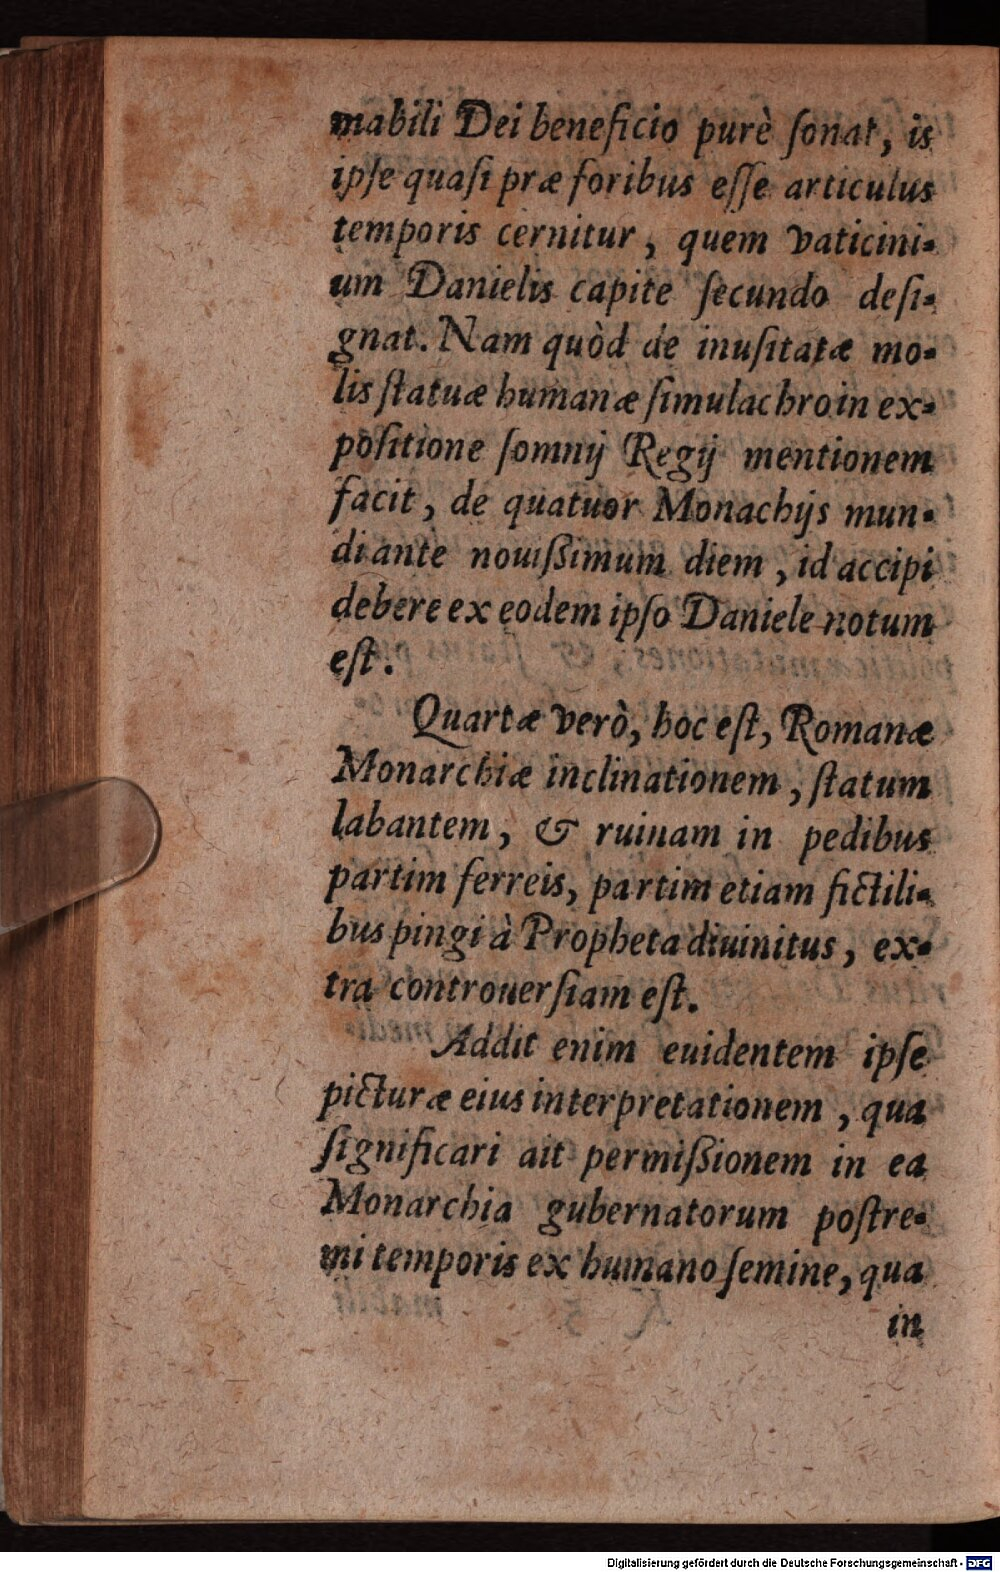 mabili Dei beneficio purè ſonat, is
ipſe quaſi præ foribus eſſe articulus
temporis cernitur, quem vaticini-
um Danielis capite ſecundo deſi-
gnat. Nam quòd de inuſitatæ mo-
lis ſtatuæ humanæ ſimulachro in ex-
poſitione ſomnij Regij mentionem
facit, de quatuor Monachijs mun-
di ante nouiſsimum diem, id accipi
debere ex eodem ipſo Daniele notum
eſt.
Quartæ verò, hoc eſt, Romanæ
Monarchiæ inclinationem, ſtatum
labantem, & ruinam in pedibus
partim ferreis, partim etiam fictili-
bus pingi à Propheta diuinitus, ex-
tra controuerſiam eſt.
Addit enim euidentem ipſe
picturæ eius interpretationem, qua
ſignificari ait permiſsionem in ea
Monarchia gubernatorum poſtre-
mi temporis ex humano ſemine, qua
in
Digitalisierung gefördert durch die Deutsche Forschungsgemeinschaft - DFG